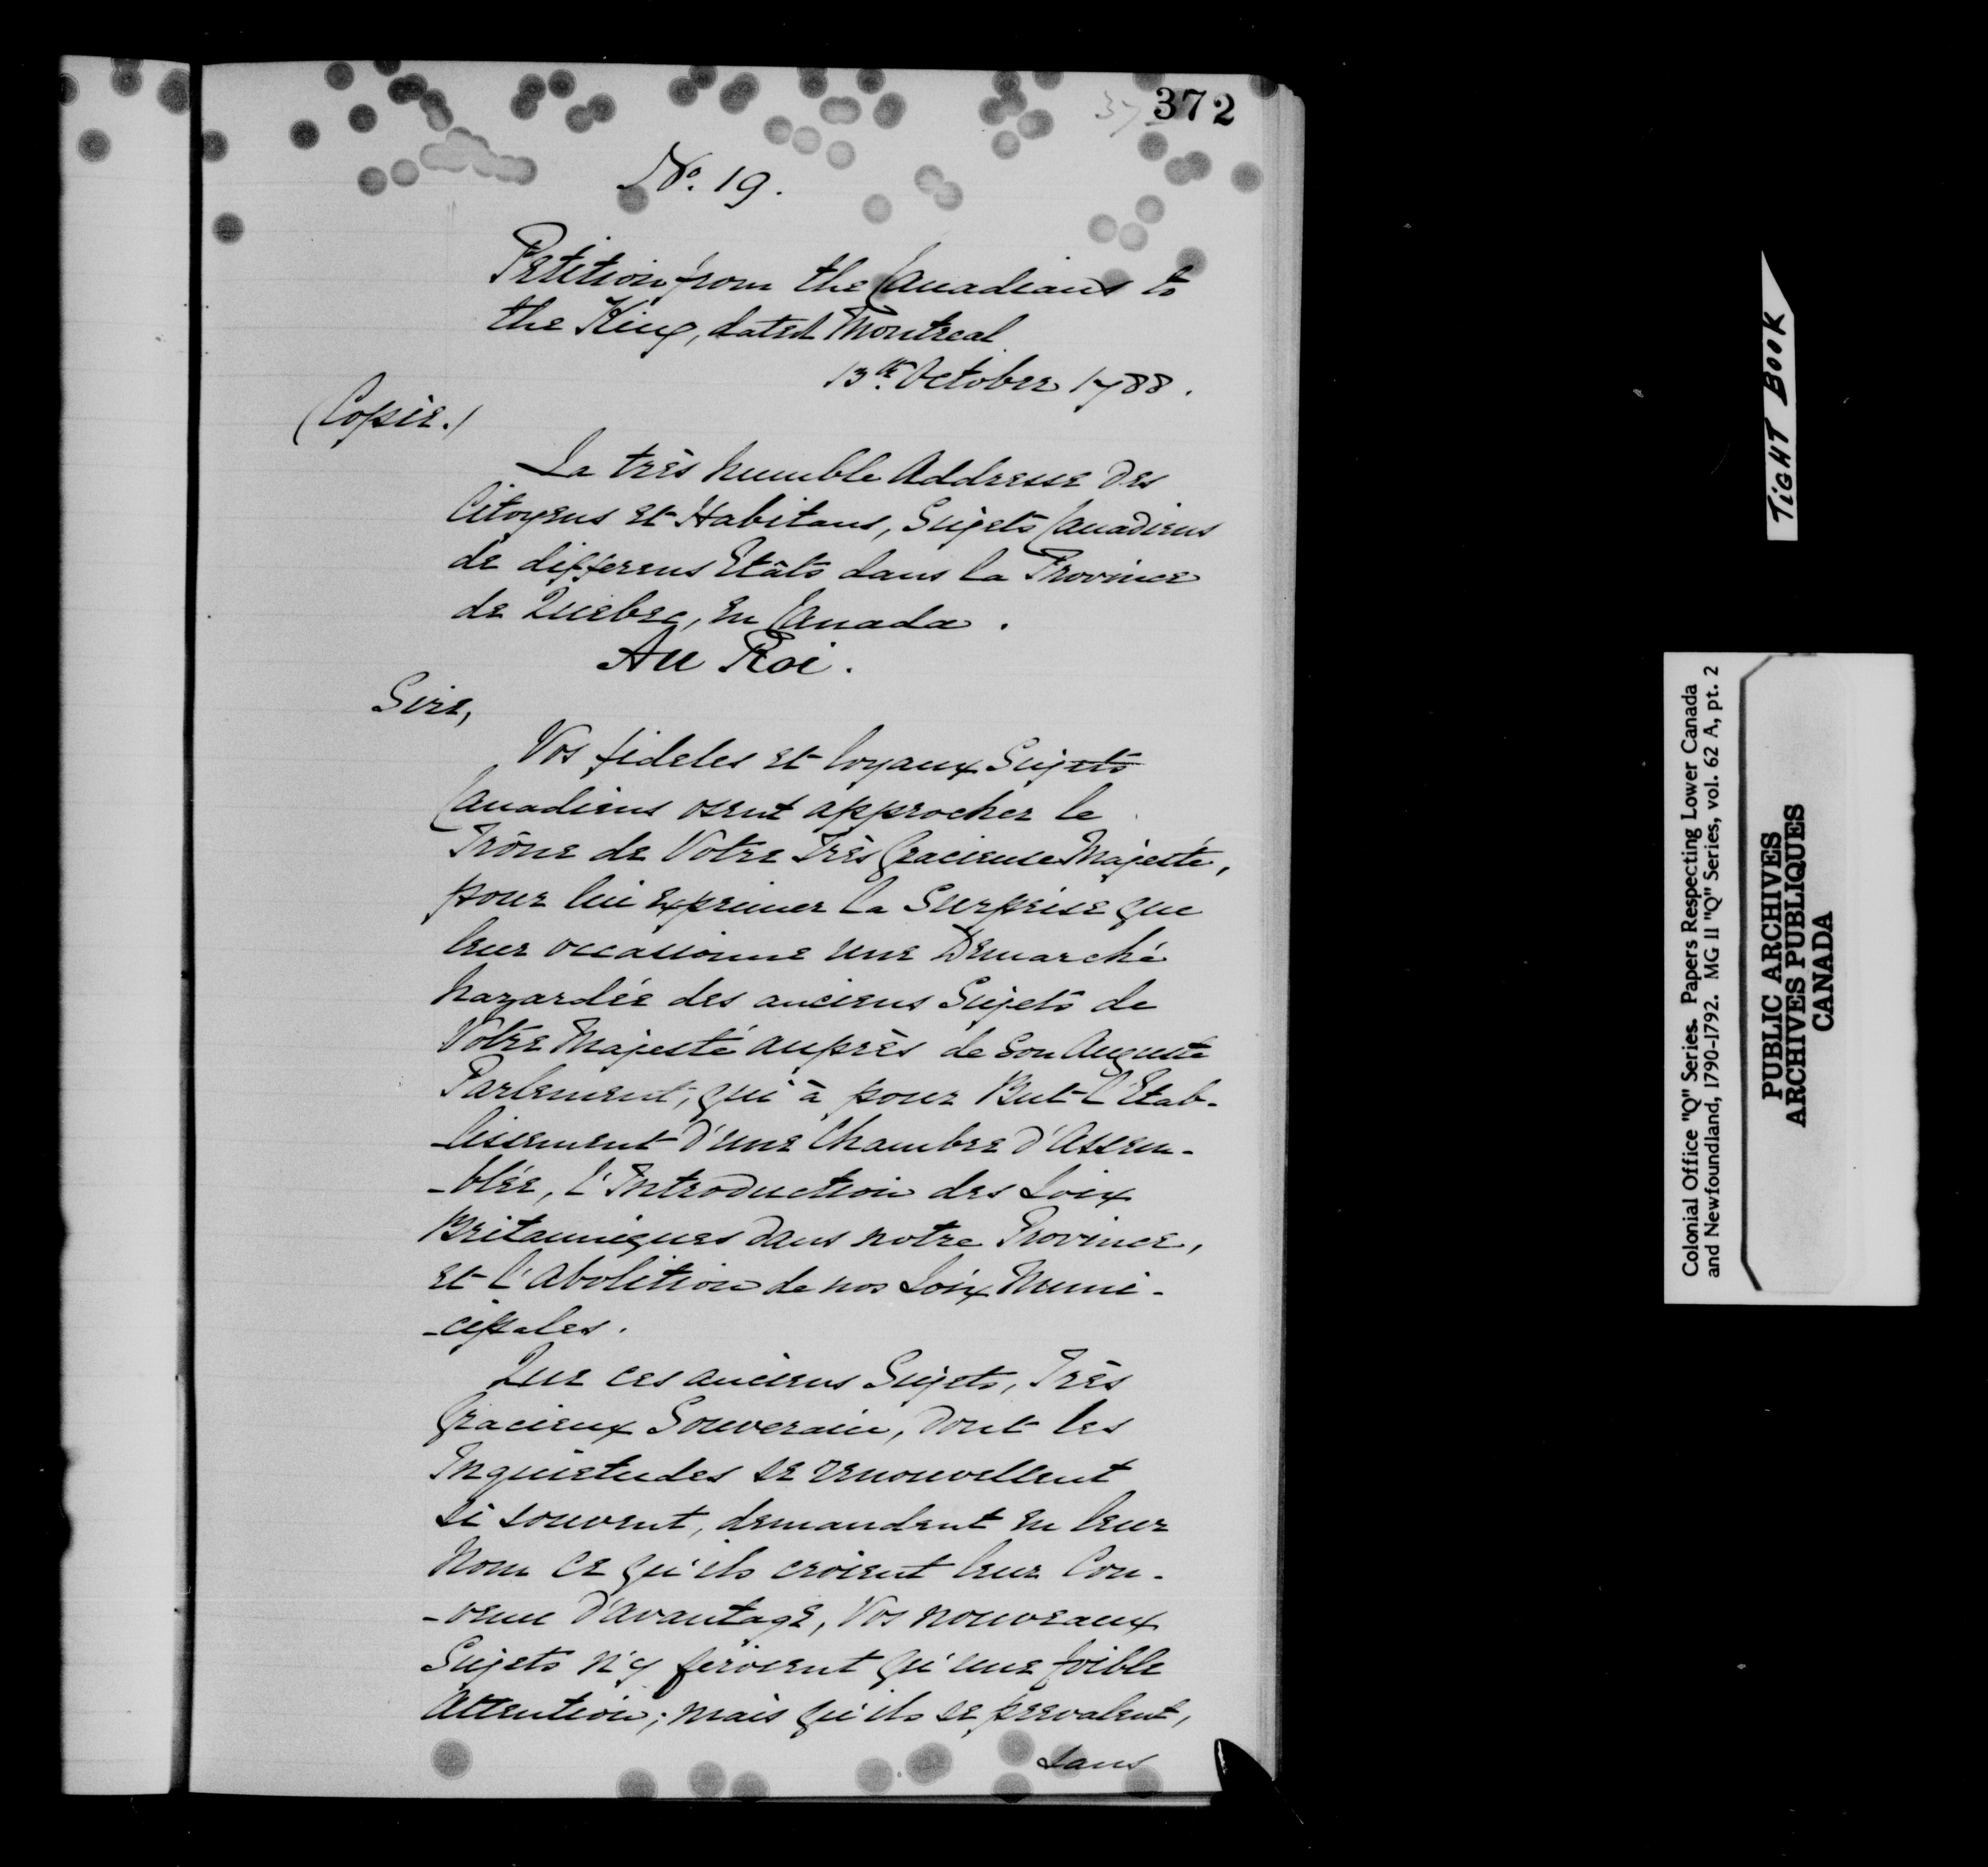 372
No. 19.
Petition from the Canadians to
the King, dated Montreal
13th. October 1788.
(Copie.)
La très humble Addresse des
Citoyens et Habitans, Sujets Canadiens
de differens Etâts dans la Province
de Quebec, en Canada.
Au Roi.
Sire,
Vos fideles et loyaux Sujets
Canadiens osent approcher le
Trône de Votre Très Gracieuse Majesté,
pour lui exprimer la Surprise que
leur occasionne une Demarché
hazardée des anciens Sujets de
Votre Majesté auprès de Son Auguste
Parlement, qui à pour But l'Etab-
-lissement d'une Chambre d'Assem-
-blée, l'Introduction des Loix
Britanniques dans notre Province,
et l'Abolition de nos Loix Muni-
-cipales.
Que ces anciens Sujets, Très
Gracieux Souverain, dont les
Inquietudes se renouvellent
si souvent, demandent en leur
Nom ce qu'ils croient leur Con-
-venir d'avantage, Vos nouveaux
Sujets n'y feroient qu'une foible
Attention; mais qu'ils se prevalent,
sans
TIGHT BOOK
Colonial Office "Q" Series. Papers Respecting Lower Canada
and Newfoundland, 1790-1792. MG 11 "Q" Series, vol. 62 A, pt. 2
PUBLIC ARCHIVES
ARCHIVES PUBLIQUES
CANADA